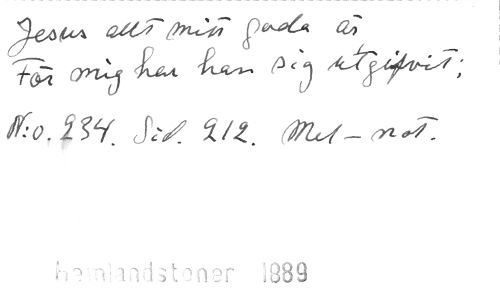 Jesus allt mitt goda är
För mig har han sig utgifvit;
N:o. 234. Sid. 212. Mel-not.
Hemlandstoner 1889